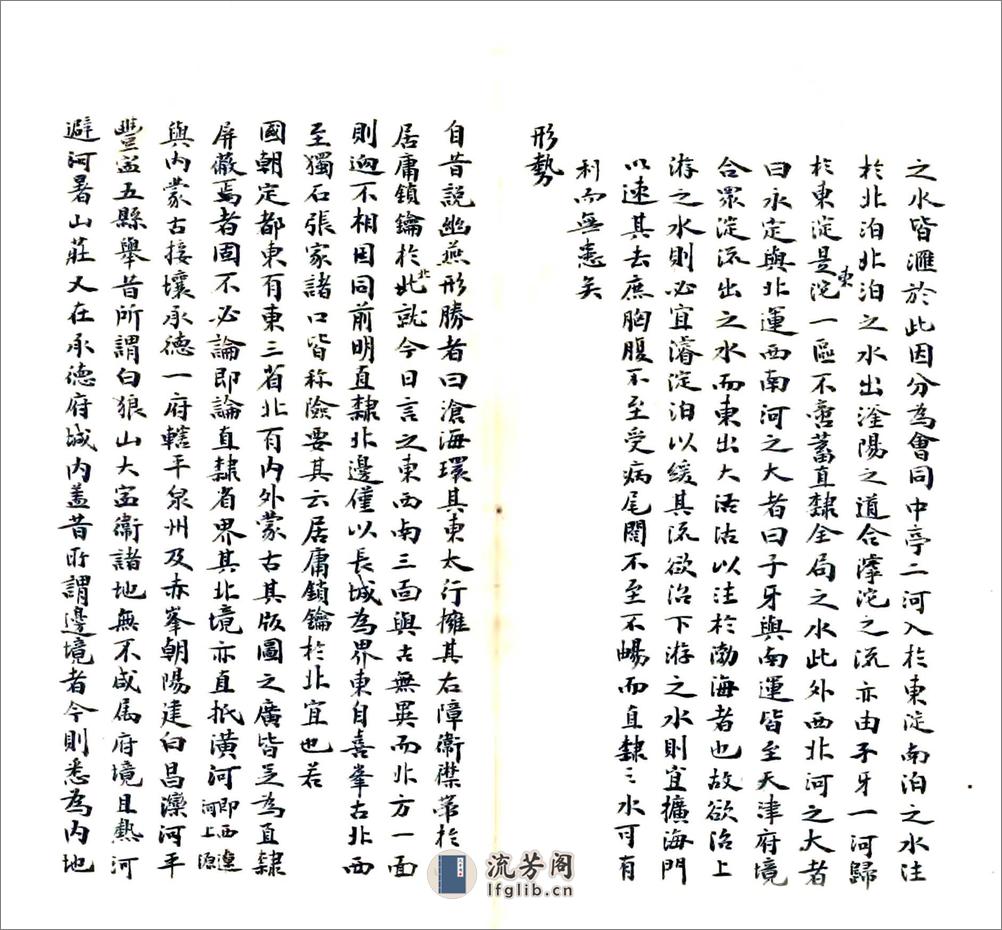 之水皆滙於此因分為會同中亭二河入於東淀南泊之水注
於北泊北泊之水出滏陽之道合滹沱之流亦由子牙一河歸
於東淀是東沱一區不啻蓄直隸全局之水此外西北河之大者
曰永定與北運西南河之大者曰子牙與南運皆至天津府境
合眾淀流出之水而東出大沽沽以注於渤海者也故欲治上
游之水則必宜濬淀泊以緩其流欲治下游之水則宜擴海門
以速其去庶胸腹不至受病尾閭不至不暢而直隸之水可有
利而無患矣
形勢
自昔說幽燕形勝者曰滄海環其東太行擁其右障衞襟帶於
居庸鎖鑰於北此就今日言之東西南三面與古無異而北方一面
則逈不相同同前明直隸北邊僅以長城為界東自喜峯古北西
至獨石張家諸口皆称險要其云居庸鎖鑰於北宜也若
國朝定都東有東三省北有内外蒙古其版圖之廣皆足為直隸
屏蔽焉者固不必論即論直隸省界其北境亦直抵潢河即西遼河上源
與内蒙古接壤承德一府轄平泉州及赤峯朝陽建白昌灤河平
豐寍五縣舉昔所謂白狼山大寍衞諸地無不咸属府境且熱河
避河暑山莊又在承德府城内盖昔所謂邊境者今則悉為内地
流芳阁
lfglib.cn